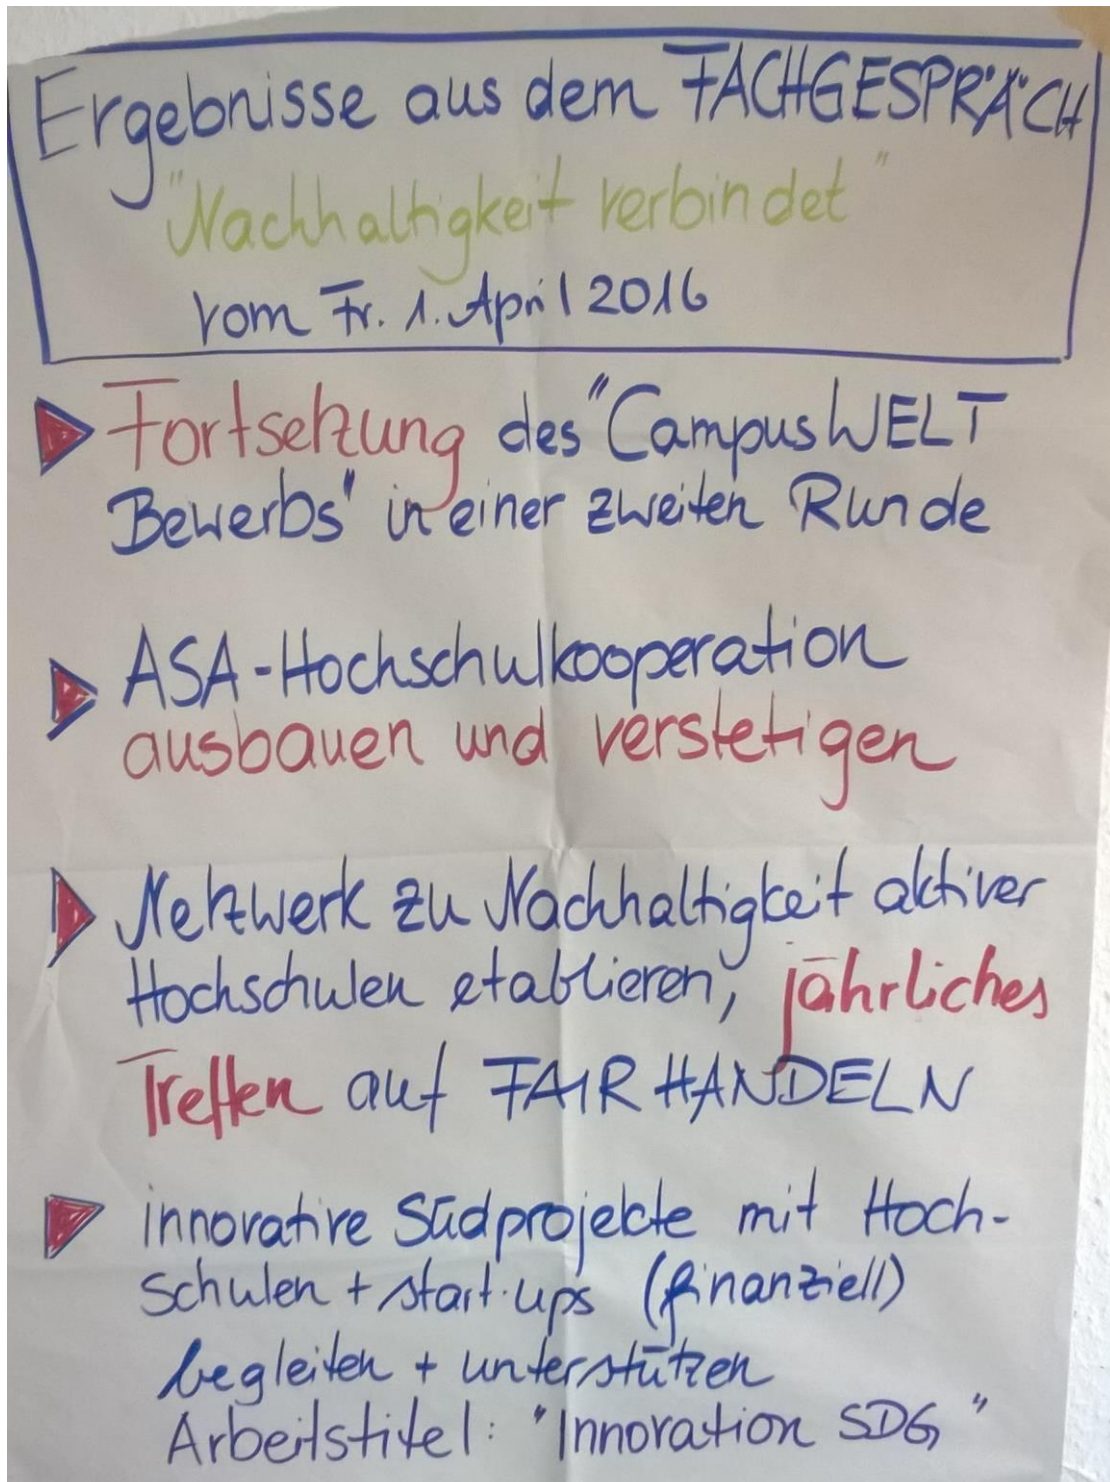 Ergebnisse aus dem FACHGESPRÄCH
"Nachhaltigkeit verbindet"
vom Fr. 1. April 2016
Fortsetzung des "CampusWELT
Bewerbs" in einer zweiten Runde
ASA-Hochschulkooperation
ausbauen und verstetigen
Netzwerk zu Nachhaltigkeit aktiver
Hochschulen etablieren, jährliches
Treffen auf FAIR HANDELN
innovative Südprojekte mit Hoch-
schulen + start-ups (finanziell)
begleiten + unterstützen
Arbeitstitel: "Innovation SDG"